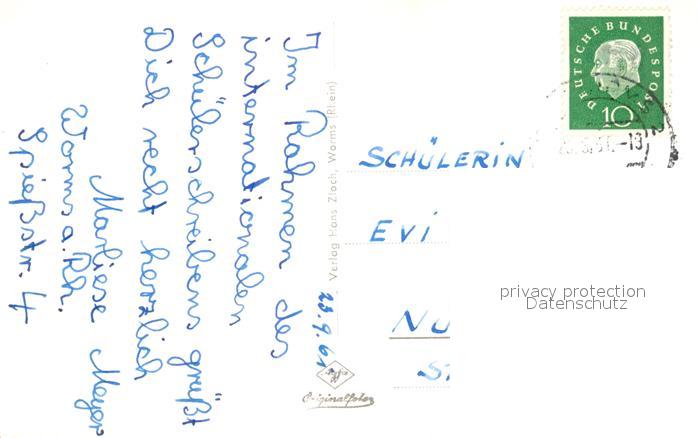 Im Rahmen des
internationalen
Schülerschreibens grüßt
Dich recht herzlich
Marliese Meyer
Worms a. Rh.
Spießstr. 4
23.9.61
Verlag Hans Zlach, Worms (Rhein)
Originalfoto
DEUTSCHE BUNDESPOST
10
SCHÜLERIN
EVI
NU
privacy protection
Datenschutz